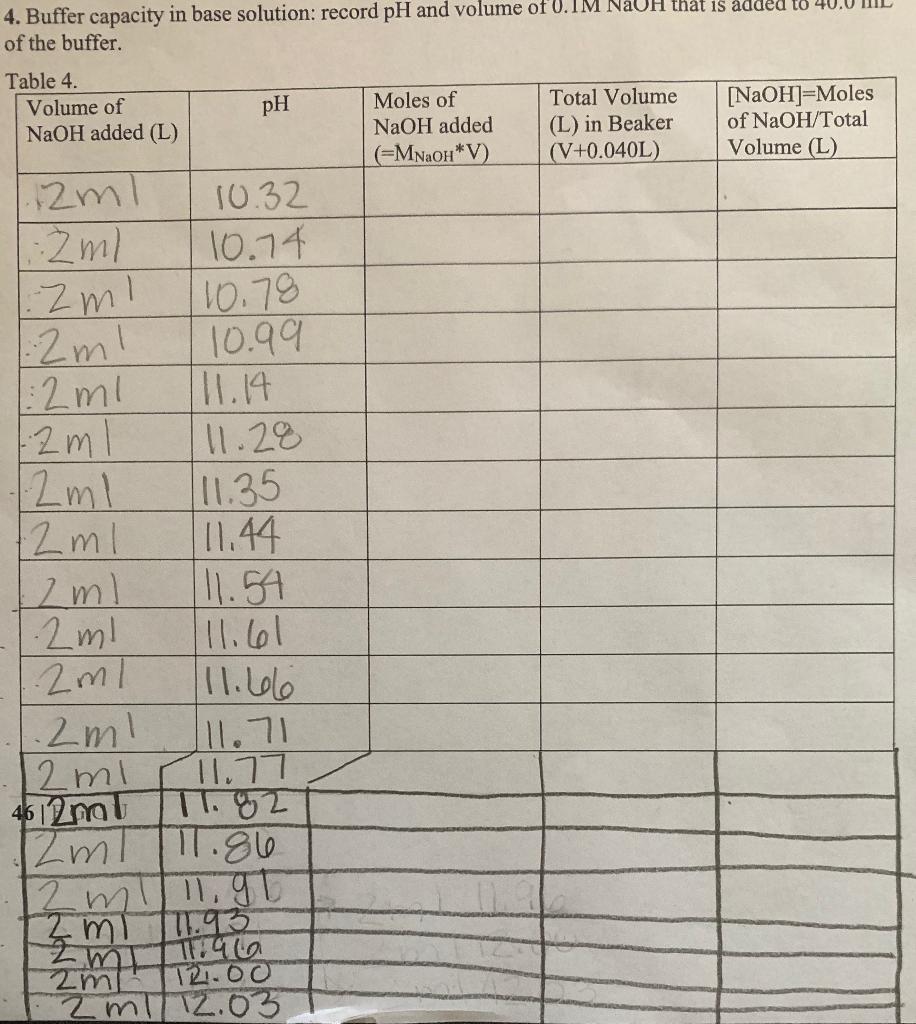 4. Buffer capacity in base solution: record pH and volume of 0.1M NaOH that is added to 40.0 mL
of the buffer.
Table 4.
Volume of NaOH added (L) pH Moles of NaOH added (=MNaOH*V) Total Volume (L) in Beaker (V+0.040L) [NaOH]=Moles of NaOH/Total Volume (L)
2ml 10.32
2ml 10.74
2ml 10.78
2ml 10.99
2ml 11.14
2ml 11.28
2ml 11.35
2ml 11.44
2ml 11.54
2ml 11.61
2ml 11.66
2ml 11.71
2ml 11.77
46 2ml 11.82
2ml 11.86
2ml 11.91
2ml 11.93
2ml 11.96
2ml 12.00
2ml 12.03